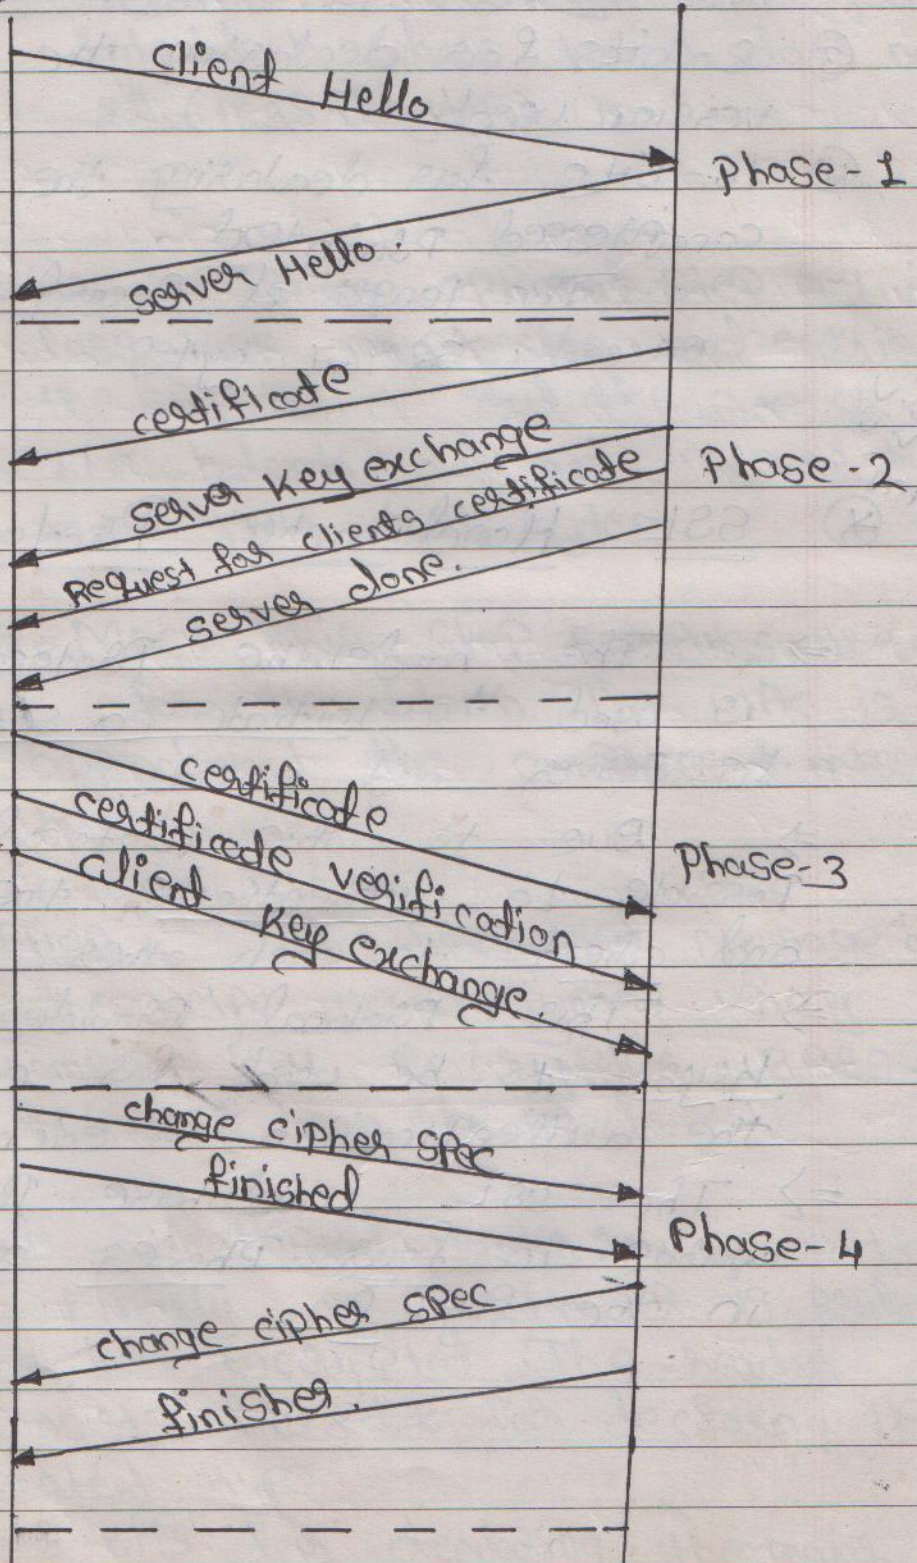 Client Hello
Phase-1
Server Hello.
certificate
Server Key exchange
Phase-2
Request for clients certificate
server done.
certificate
certificate verification
Phase-3
Client Key exchange.
change cipher spec
finished
Phase-4
change cipher spec
finisher.